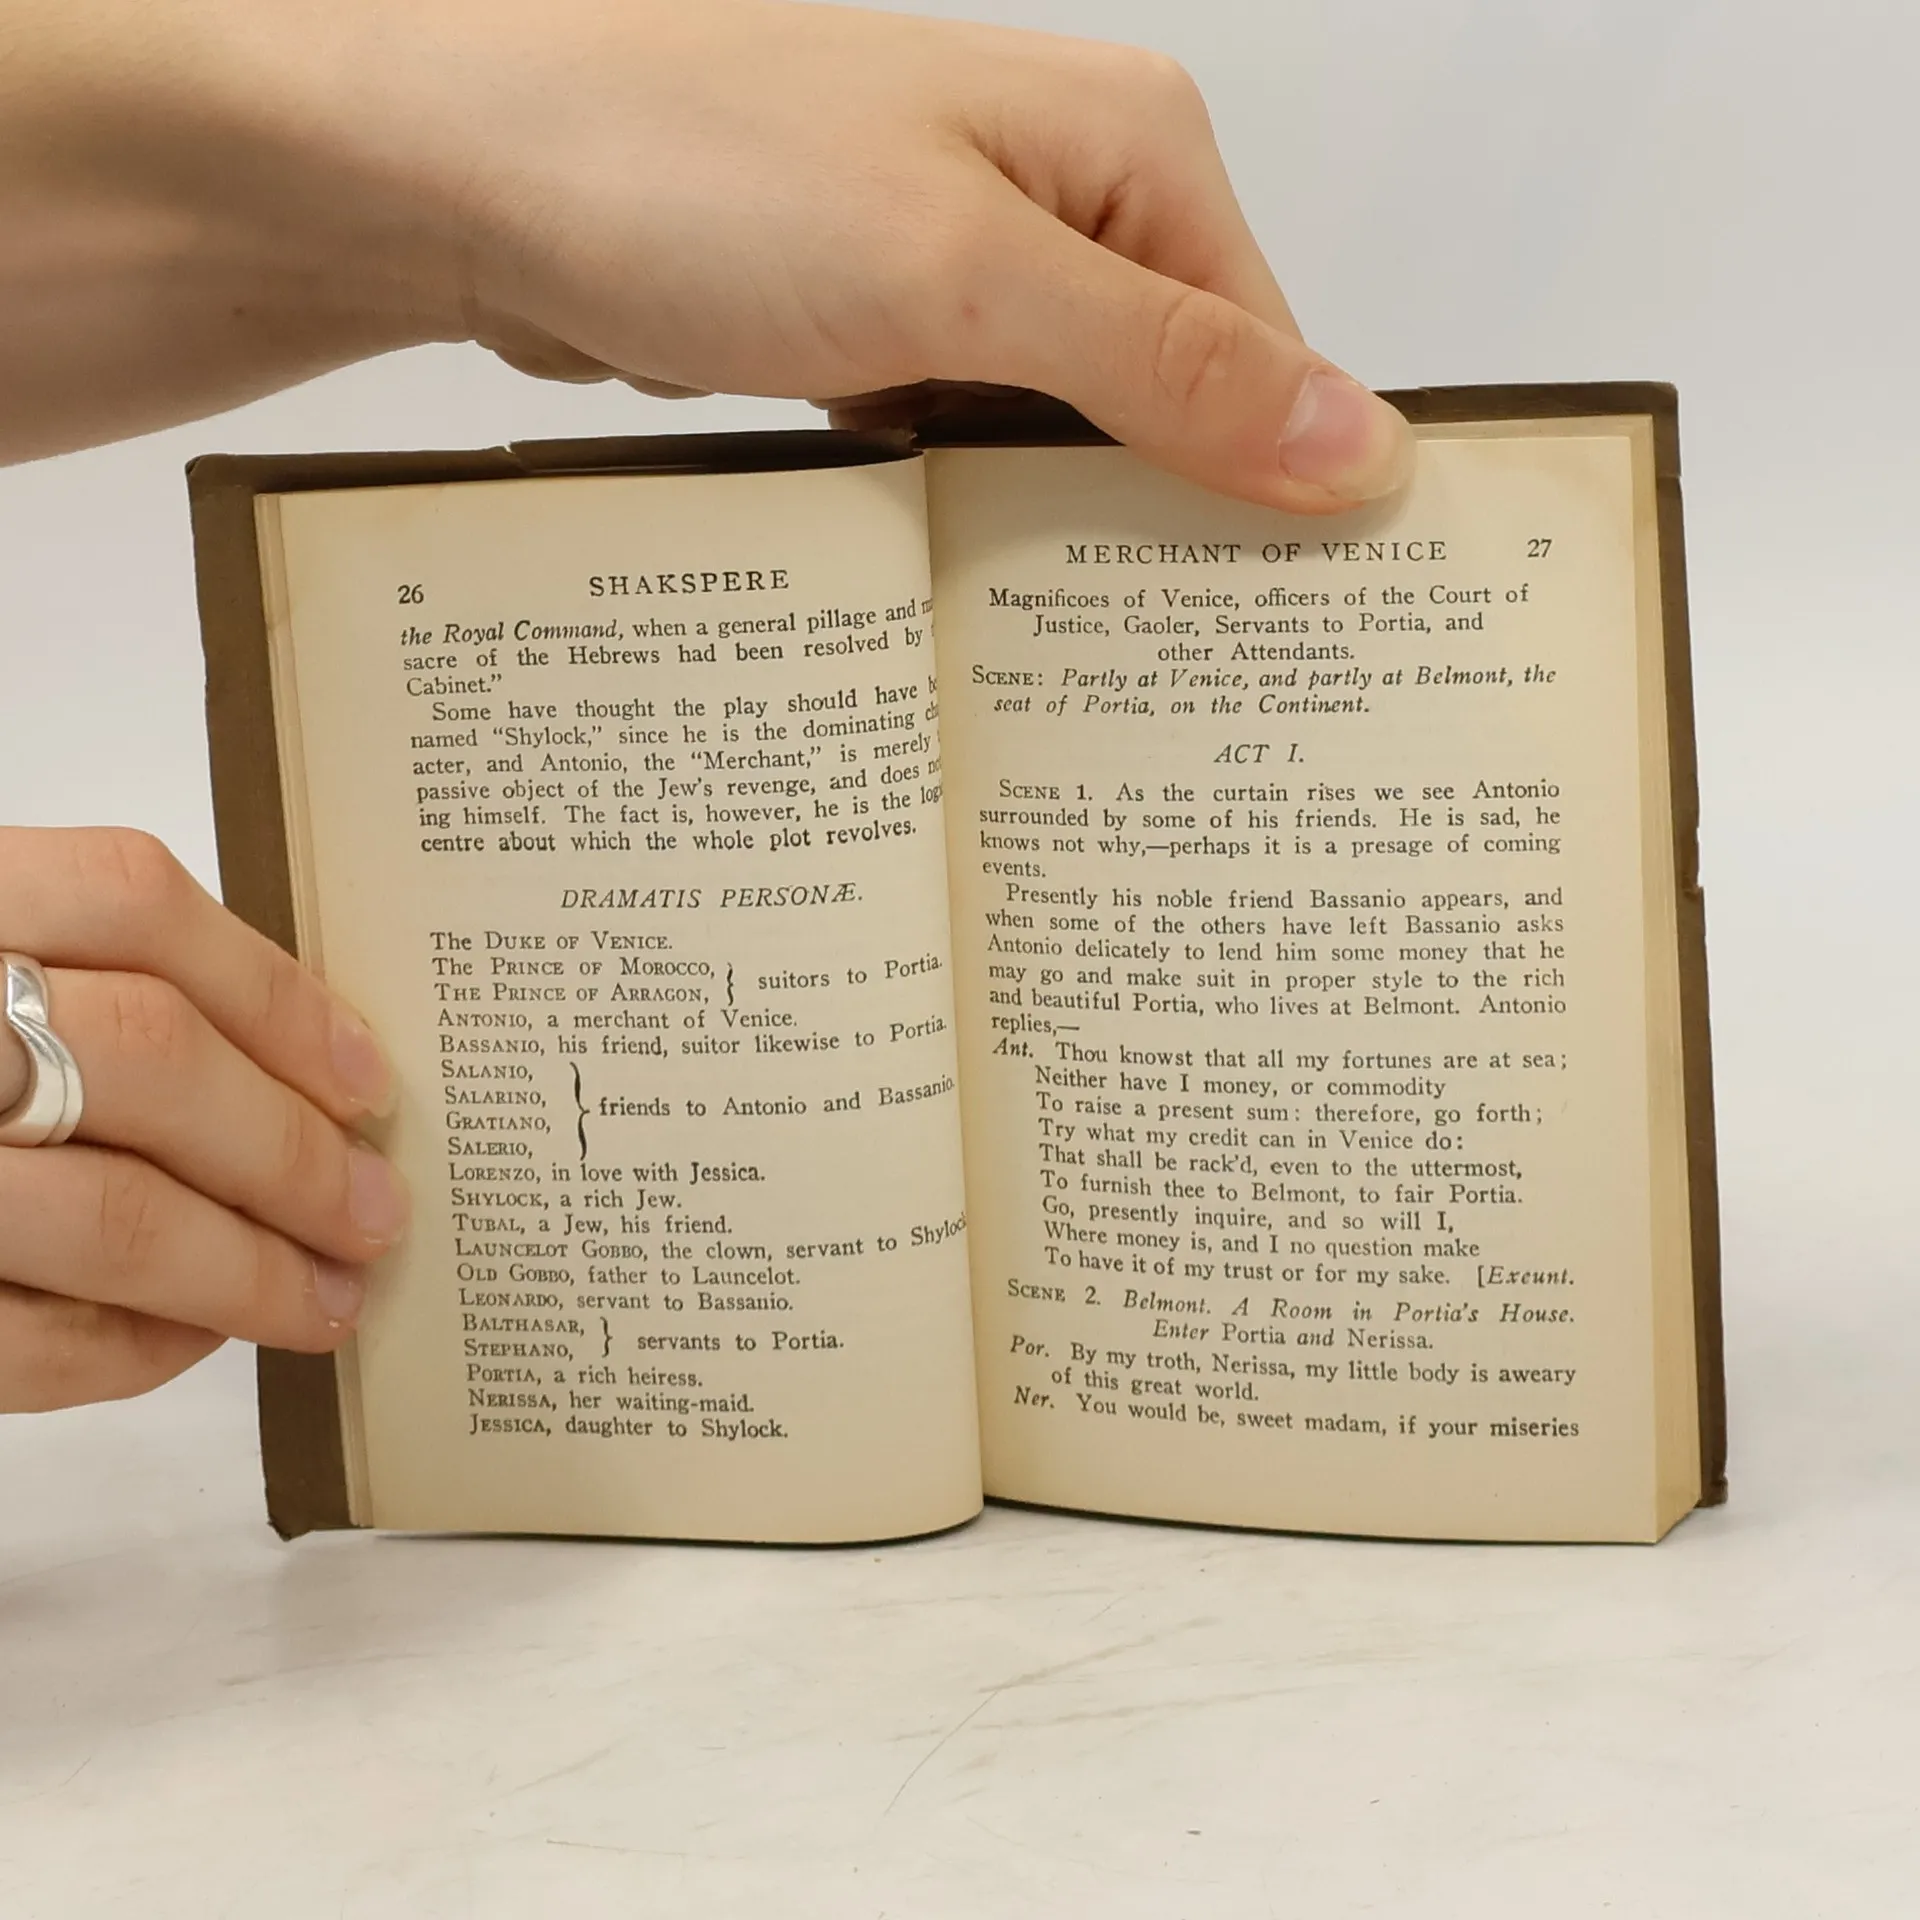 26 SHAKSPERE
the Royal Command, when a general pillage and
sacre of the Hebrews had been resolved by
Cabinet.”
Some have thought the play should have
named “Shylock,” since he is the dominating
acter, and Antonio, the “Merchant,” is merely
passive object of the Jew’s revenge, and does
ing himself. The fact is, however, he is the
centre about which the whole plot revolves.
DRAMATIS PERSONÆ.
The DUKE OF VENICE.
The PRINCE OF MOROCCO,
THE PRINCE OF ARRAGON, } suitors to Portia.
ANTONIO, a merchant of Venice.
BASSANIO, his friend, suitor likewise to Portia.
SALANIO,
SALARINO,
GRATIANO,
SALERIO, } friends to Antonio and Bassanio.
LORENZO, in love with Jessica.
SHYLOCK, a rich Jew.
TUBAL, a Jew, his friend.
LAUNCELOT GOBBO, the clown, servant to Shylock
OLD GOBBO, father to Launcelot.
LEONARDO, servant to Bassanio.
BALTHASAR,
STEPHANO, } servants to Portia.
PORTIA, a rich heiress.
NERISSA, her waiting-maid.
JESSICA, daughter to Shylock.
MERCHANT OF VENICE 27
Magnificoes of Venice, officers of the Court of
Justice, Gaoler, Servants to Portia, and
other Attendants.
SCENE: Partly at Venice, and partly at Belmont, the
seat of Portia, on the Continent.
ACT I.
SCENE 1. As the curtain rises we see Antonio
surrounded by some of his friends. He is sad, he
knows not why,—perhaps it is a presage of coming
events.
Presently his noble friend Bassanio appears, and
when some of the others have left Bassanio asks
Antonio delicately to lend him some money that he
may go and make suit in proper style to the rich
and beautiful Portia, who lives at Belmont. Antonio
replies,—
Ant. Thou knowst that all my fortunes are at sea;
Neither have I money, or commodity
To raise a present sum: therefore, go forth;
Try what my credit can in Venice do:
That shall be rack’d, even to the uttermost,
To furnish thee to Belmont, to fair Portia.
Go, presently inquire, and so will I,
Where money is, and I no question make
To have it of my trust or for my sake. [Exeunt.
SCENE 2. Belmont. A Room in Portia’s House.
Enter Portia and Nerissa.
Por. By my troth, Nerissa, my little body is aweary
of this great world.
Ner. You would be, sweet madam, if your miseries